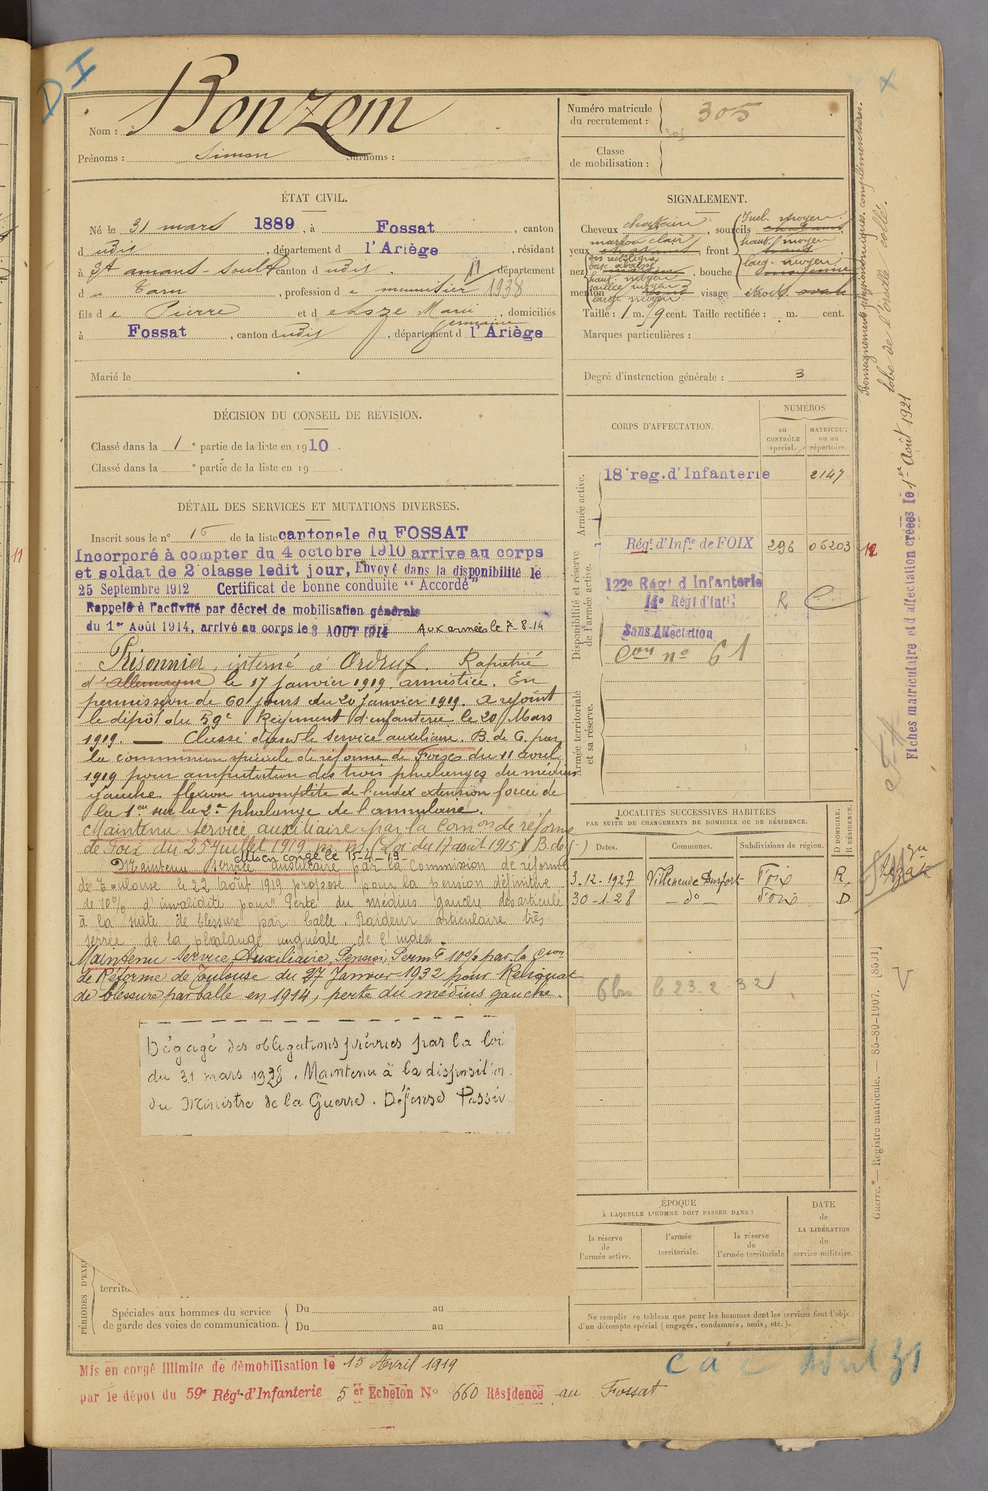 D I
Bonzom
Nom :
Prénoms : Simon Surnoms :
Numéro matricule
du recrutement : 305
Classe
de mobilisation :
ÉTAT CIVIL.
Né le 31 mars 1889, à Fossat, canton
dudit, département d l'Ariège, résidant
à St amans-Soult canton dudit, département
d u Tarn, profession de menuisier 1938
fils de Pierre et d Marie
germaine, domiciliés
à Fossat, canton dudit, département d l'Ariège
Marié le
SIGNALEMENT.
Cheveux chatain, sourcils
yeux marron clair, front
nez, bouche
menton visage étroit ovale
Incl. moyen
haut. moyen
larg. moyen
dos rectiligne
base abaissé
haut. moyen
saillie moyen
large moyen
Taille : 1 m. cent. Taille rectifiée : m. cent.
Marques particulières :
Degré d'instruction générale : 3
Renseignements physionomiques complémentaires.
lobe de l'oreille collé.
DÉCISION DU CONSEIL DE RÉVISION.
Classé dans la 1e partie de la liste en 1910.
Classé dans la e partie de la liste en 19 .
DÉTAIL DES SERVICES ET MUTATIONS DIVERSES.
Inscrit sous le n° 16 de la liste cantonale du FOSSAT
Incorporé à compter du 4 octobre 1910 arrive au corps
et soldat de 2e classe ledit jour, Envoyé dans la disponibilité le
25 Septembre 1912 Certificat de bonne conduite "Accordé"
Rappelé à l'activité par décret de mobilisation générale
du 1er Août 1914, arrivé au corps le 3 AOUT 1914 Aux armées le 7-8-14
Prisonnier, interné à Ordruf. Rapatrié
d'Allemagne le 17 janvier 1919. armistice. En
permission de 60 jours du 20 janvier 1919. a rejoint
le dépôt du 59e Régiment d'infanterie le 20 Mars
1919. — Classé dans le service auxiliaire. B. de G. par
la commission spéciale de réforme de Foix du 11 avril
1919 pour amputation des trois phalanges du médius
gauche. flexion incomplète de l'index extension forcée de
la 1ere sur la 2e phalange de l'annulaire.
Maintenu Service auxiliaire par la Comon de réforme
de Foix du 25 Juillet 1919 (Loi du 17 août 1915) B. de G.
Mis en congé le 15-4-19
Maintenu service auxiliaire par la Commission de réforme
de Toulouse le 22 Août 1919 proposé pour la pension définitive
de 10% d'invalidité pour "Perte du médius gauche désarticulé
à la suite de blessure par balle. Raideur articulaire très
serrée de la phalange unguéale de l'index
Maintenu Service Auxiliaire, Pension Perm.te 10% par la Con
de Réforme de Toulouse du 27 Janvier 1932 pour Reliquat
de blessure par balle en 1914, perte du médius gauche.
Dégagé des obligations prévues par la loi
du 31 mars 1928. Maintenu à la disposition
du Ministre de la Guerre. Défense Passive
CORPS D'AFFECTATION.
NUMÉROS
au
contrôle
spécial.
matricule
ou au
répertoire.
Armée active.
18e reg. d'Infanterie 2147
Disponibilité et réserve
de l'armée active.
Régt d'Infie de FOIX 296 06203
122e Régt d'Infanterie
14e Régt d'Inf.
Sans Affectation
Con n° 61
Armée territoriale
et sa réserve.
12
11
Fiches matriculaire et d'affectation créées le 1er Août 1921
LOCALITÉS SUCCESSIVES HABITÉES
PAR SUITE DE CHANGEMENTS DE DOMICILE OU DE RÉSIDENCE.
Dates. Communes. Subdivisions de région. D DOMICILE. R RÉSIDENCE.
3.12.1927 Villeneuve Durfort Foix R
30-1-28 — do — Foix D
le 23-2-32
Guerre. — Registre matricule.
ÉPOQUE
À LAQUELLE L'HOMME DOIT PASSER DANS :
la réserve
de
l'armée active.
l'armée
territoriale.
la réserve
de
l'armée territoriale
DATE
de
LA LIBÉRATION
du
service militaire.
territo
Spéciales aux hommes du service
de garde des voies de communication.
Du au
Du au
Ne remplir ce tableau que pour les hommes dont les services font l'objet
d'un décompte spécial (engagés, condamnés, omis, etc.).
Mis en congé illimité de démobilisation le 15 Avril 1919
par le dépôt du 59e Régt d'Infanterie 5er Echelon No 660 Résidence au Fossat